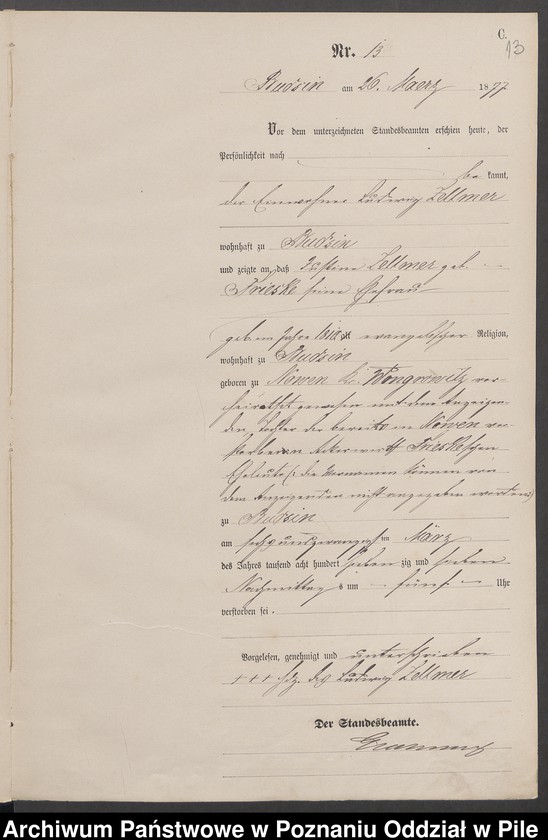 C.
13
Nr. 13
Budsin am 26. Maerz 1877
Vor dem unterzeichneten Standesbeamten erschien heute, der
Persönlichkeit nach
be kannt,
der Einwohner Ludwig Zellmer
wohnhaft zu Budsin
und zeigte an, daß Justine Zellmer geb.
Frieske seine Ehefrau
geb im Jahre 1810 alt evangelischer Religion,
wohnhaft zu Budsin
geboren zu Nowen Kr. Wongrowitz ver-
heirathet gewesen mit dem Anzeigen-
den, Tochter der bereits in Nowen ver-
storbenen Ackerwirth Frieskeschen
Eheleute (: die Vornamen können von
dem Anzeigenden nicht angegeben werden:)
zu Budsin
am sechsundzwanzigsten März
des Jahres tausend acht hundert sieben zig und sieben
Nachmittags um fünf Uhr
verstorben sei.
Vorgelesen, genehmigt und unterschrieben
+++ hdz. des Ludwig Zellmer
Der Standesbeamte.
Archiwum Państwowe w Poznaniu Oddział w Pile